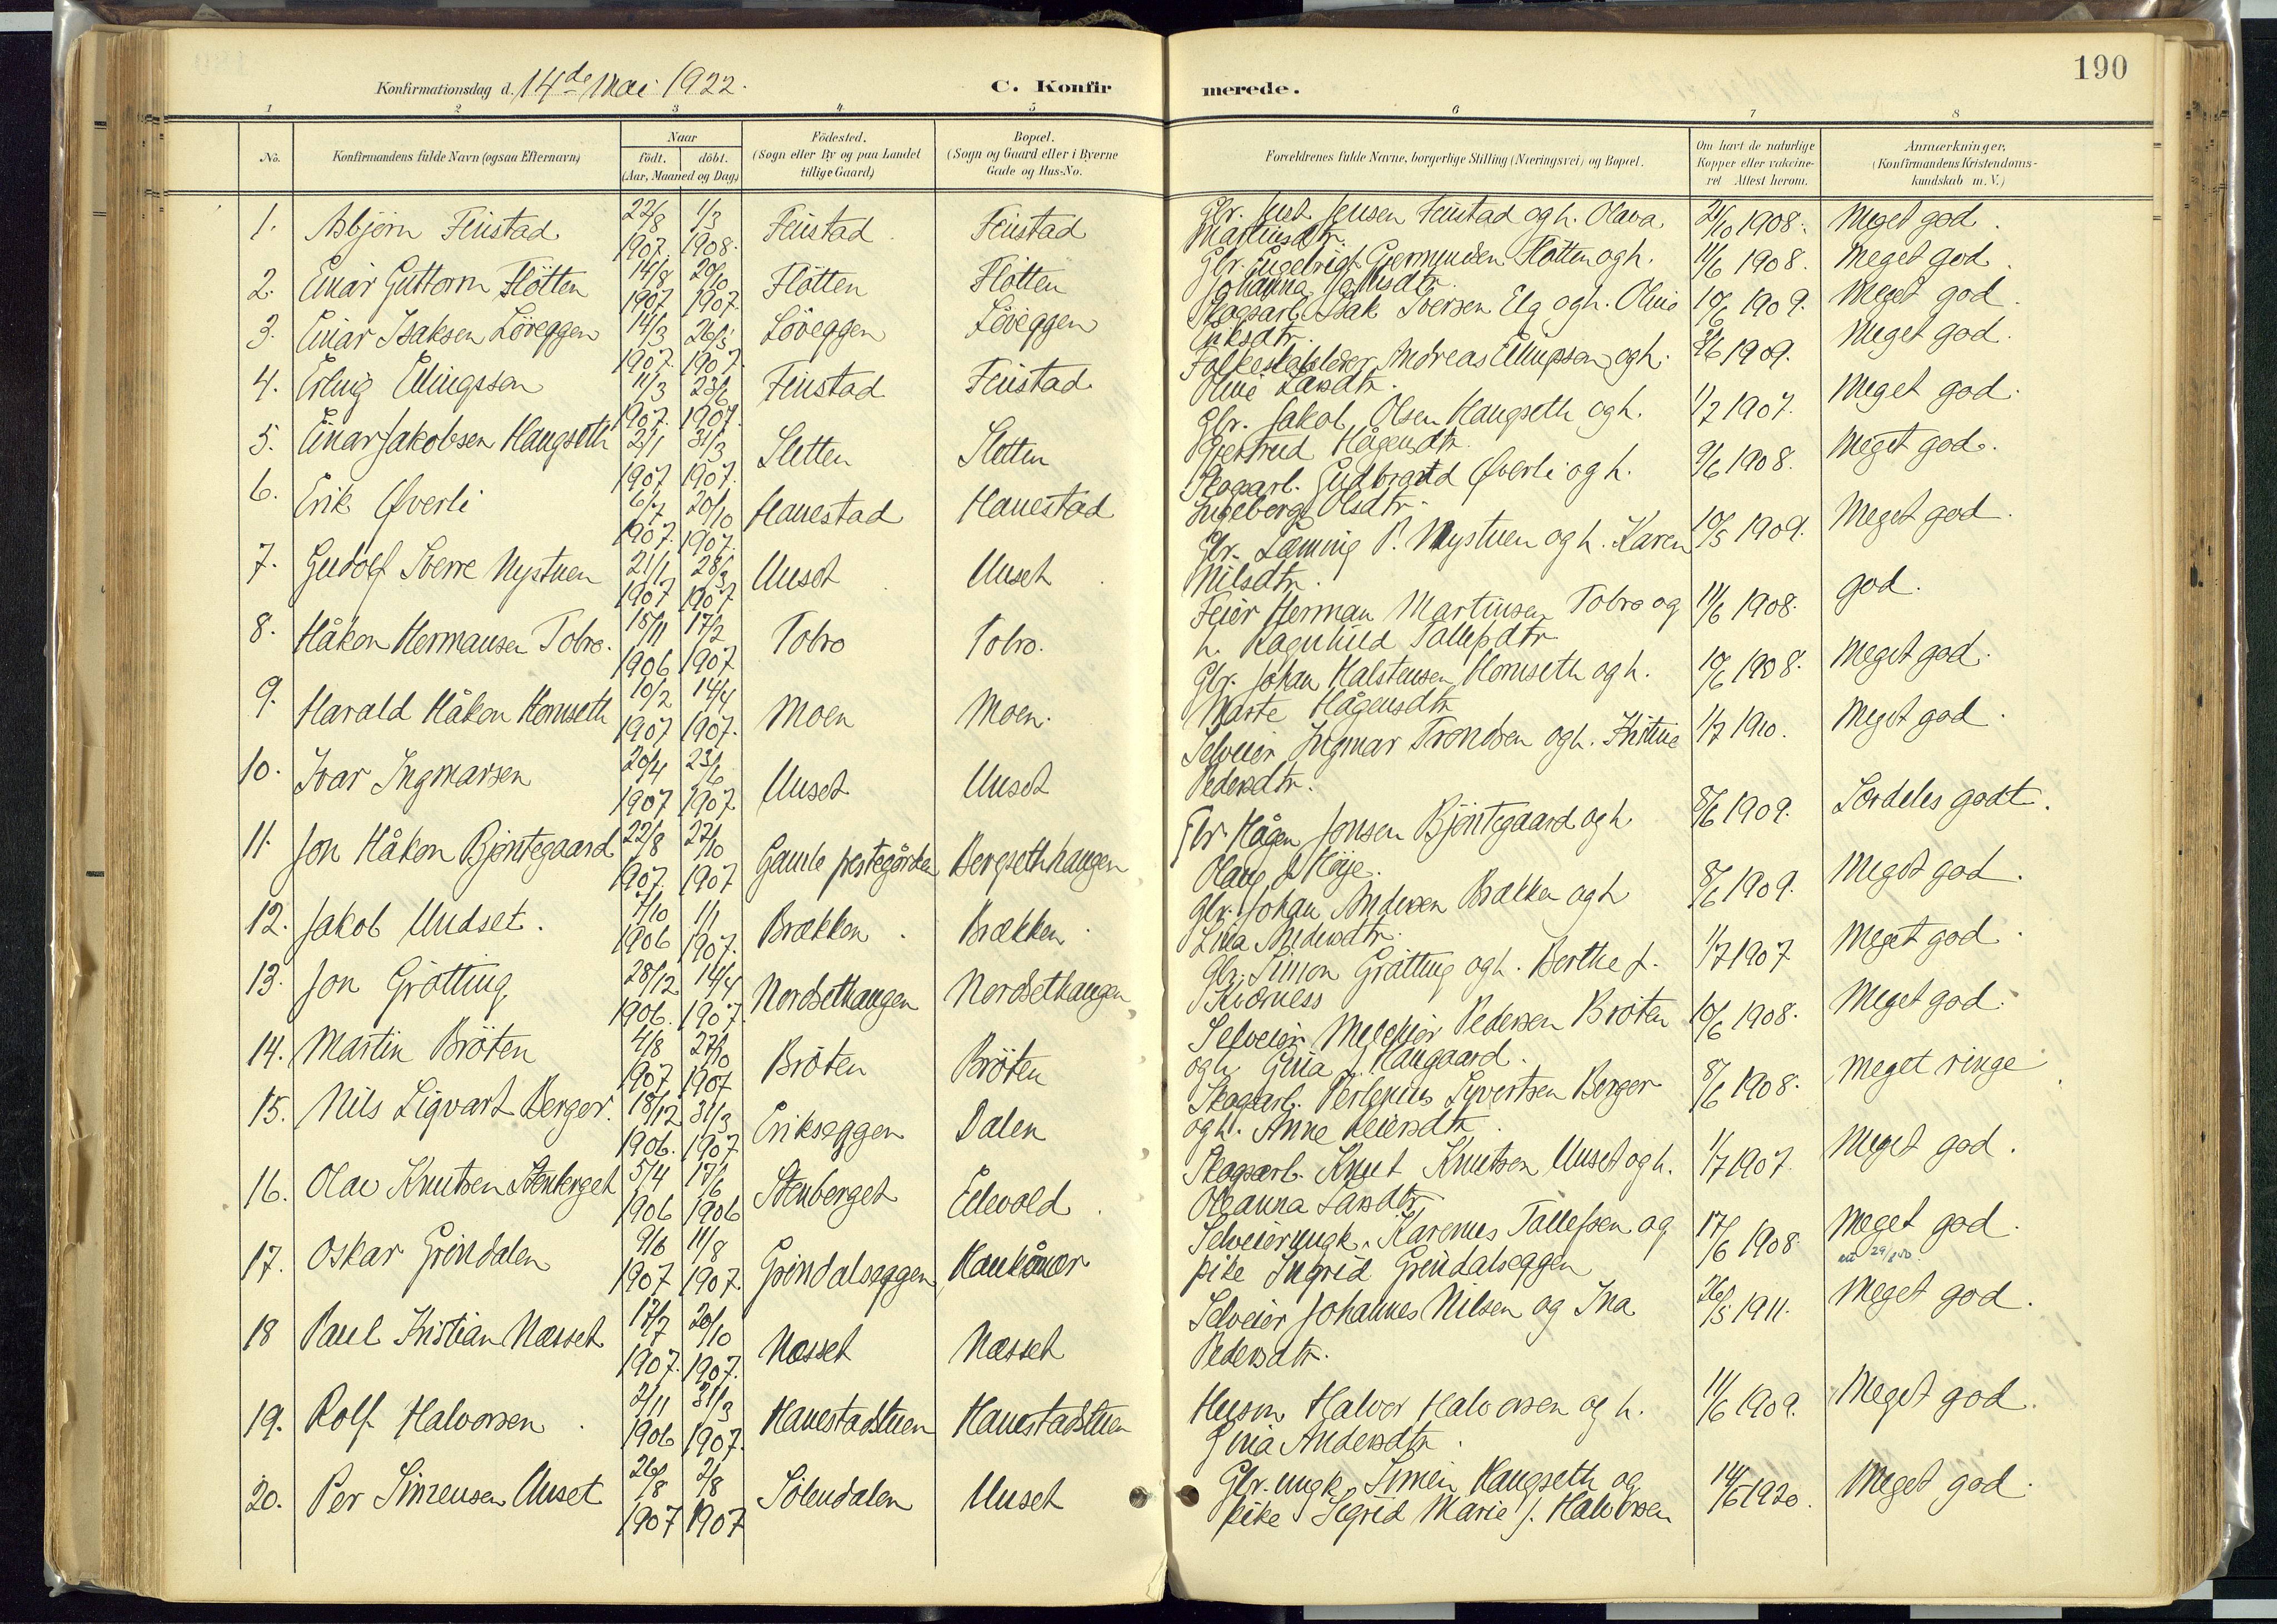 190
Konfirmationsdag d. 14de Mai 1922.
C. Konfirmerede.
1 2 3 4 5 6 7 8
No.
Konfirmandens fulde Navn (ogsaa Efternavn)
Naar
født. døbt.
(Aar, Maaned og Dag.)
Fødested.
(Sogn eller By og paa Landet
tillige Gaard)
Bopæl.
(Sogn og Gaard eller i Byerne
Gade og Hus-No.
Forældrenes fulde Navne, borgerlige Stilling (Næringsvei) og Bopæl.
Om havt de naturlige
Kopper eller vakcine-
ret Attest herom.
Anmærkninger,
(Konfirmandens Kristendoms-
kundskab m. V.)
1. Asbjørn Finstad 22/8 1907. 1/3 1908. Finstad Finstad Gbr. Just Jensen Finstad og h. Olava 21/10 1908. Meget god.
Martinsdtr.
2. Einar Guttorm Fløtten 14/8 1907 20/10 1907. Fløtten Fløtten Gbr. Engebrigt Gjermundsen Fløtten og h. 11/6 1908. Meget god.
Johanna
3. Einar Isaksen Løveggen 14/3 1907. 26/5 1907. Løveggen Løveggen Skogsarb. Isak Iversen Elg og h. Oline 10/6 1909. Meget god.
Eriksdtr.
4. Erling Ellingsson 11/3 1907. 23/6 1907. Finstad Finstad Andreas Ellingsson og h. 8/6 1909. Meget god.
Oline Larsdtr.
5. Einar Jakobsen Haugseth 2/1 1907 31/3 1907. Sletten Sletten Gbr. Jakob Olsen Haugseth og h. 1/7 1907. Meget god.
Gjertrud Hågensdtr.
6. Erik Øverli 6/7 1907. 20/10 1907. Hanestad Hanestad Skogsarb. Gudbrand Øverli og h. 9/6 1908. Meget god.
Ingeborg Olsdtr.
7. Gudolf Sverre Nystuen 21/1 1907 28/3 1907 Unset Unset Gbr. P. Nystuen og h. Karen 10/5 1909. Meget god.
Nilsdtr.
8. Håkon Hermansen Tobro. 18/11 1906 17/2 1907. Tobro Tobro. Feier Herman Martinsen Tobro og 11/6 1908. god.
h. Ragnhild Tollefsdtr.
9. Harald Håkon Hornseth 10/2 1907 14/4 1907. Moen Moen. Gbr. Johan Halstensen Hornseth og h. 10/6 1908. Meget god.
Marte Hågensdtr
10. Ivar Ingmarsen 20/4 1907 23/6 1907. Unset Unset Selveier Ingmar Trondsen og h. Kristine 1/7 1910. Meget god.
Pedersdtr.
11. Jon Håkon Bjøntegaard 22/8 1907. 27/10 1907 Gamle prestegården Bergsethhaugen Gbr. Hågen Jonsen Bjøntegaard og h 8/6 1909. Særdeles godt.
Olaug f. Høje.
12. Jakob Undset. 7/10 1906 1/1 1907. Brækken. Brækken. Gbr. Johan Andersen Brækken og h 8/6 1909. Meget god.
Lina Andersdtr.
13. Jon Grøtting 28/12 1906. 14/4 1907. Nordsethaugen Nordsethaugen Gbr. Simon Grøtting og h. Berthe f. 1/7 1907 Meget god.
14. Martin Brøten 4/8 1907. 27/10 1907 Brøten Brøten Selveier Melchior Pedersen Brøten 10/6 1908. Meget god.
og h. Gina f. Haugaard.
15. Nils Sigvart Berger. 18/12 1906. 31/3 1907 Erikseggen Dalen Skogsarb. Perlenius Syvertsen Berger 8/6 1908. meget ringe.
og h. Anne Reiersdtr.
16. Olav Knutsen Stenberget 5/4 1906 17/6 1906 Stenberget Eidevold. Skogsarb. Knut Knutsen Unset og h. 1/7 1907. Meget god.
Oleanna Larsdtr
17. Oskar Grindalen 9/6 1907 11/8 1907. Grindalseggen Selveierungk. Karenus Tollefsen og 17/6 1908. Meget god.
pike Ingrid Grindalseggen
18 Paul Kristian Næsset 17/7 1907. 20/10 1907. Næsset Næsset Selveier Johannes Nilsen og Ina 26/5 1911. Meget god.
Pedersdtr.
19. Rolf Halvorsen. 2/11 1906 31/3 1907. Hanestadstuen Hanestadstuen Husm. Halvor Halvorsen og h. 11/6 1909. Meget god.
Gina Andersdtr.
20. Per Simensen Unset 26/8 1907 2/8 1907 Sølendalen Unset Gbr. ungk. Simen Haugseth og 14/5 1920. Meget god.
pike Sigrid Marie f. Halvorsen